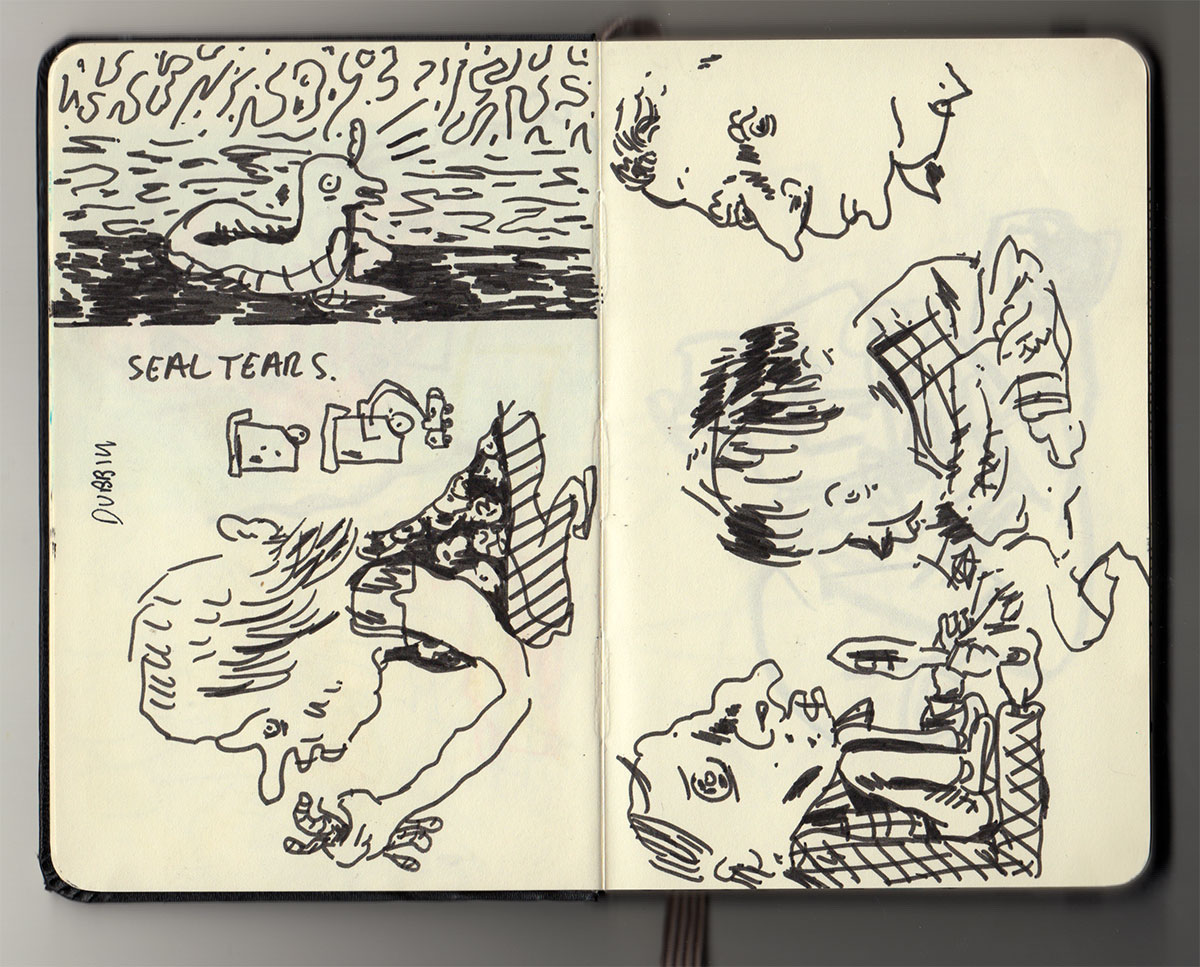 SEAL TEARS.
DUBBIN